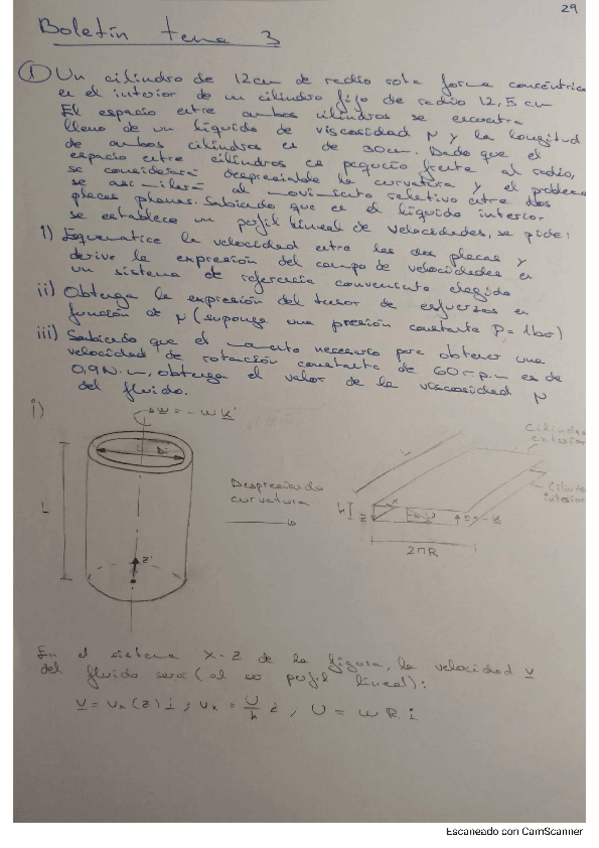 29
Boletín tema 3
① Un cilindro de 12cm de radio rota forma concéntrica
en el interior de un cilindro fijo de radio 12,5 cm
El espacio entre ambos cilindros se encuentra
lleno de un líquido de viscosidad μ y la longitud
de ambos cilindros es de 30cm. Dado que el
espacio entre cilindros es pequeño frente al radio,
se considerará despreciable la curvatura y el problema
se asimilará al movimiento relativo entre dos
placas planas. Sabiendo que en el líquido interior
se establece un perfil lineal de velocidades, se pide:
i) Esquematice la velocidad entre las dos placas y
derive la expresión del campo de velocidades en
un sistema de referencia conveniente elegido
ii) Obtenga la expresión del tensor de esfuerzos en
función de μ (suponga una presión constante P=1bar)
iii) Sabiendo que el momento necesario para obtener una
velocidad de rotación constante de 60 r.p.m es de
0,9N·m, obtenga el valor de la viscosidad μ
del fluido.
i)
W = -ω K'
Di
L
z'
Despreciando
curvatura
Cilindro
exterior
Cilindro
interior
L
h
x
z
U
2πR
En el sistema X-Z de la figura, la velocidad v
del fluido será (al ser perfil lineal):
v = vx(z) i ; vx = U/h z ; U = ωR i
Escaneado con CamScanner